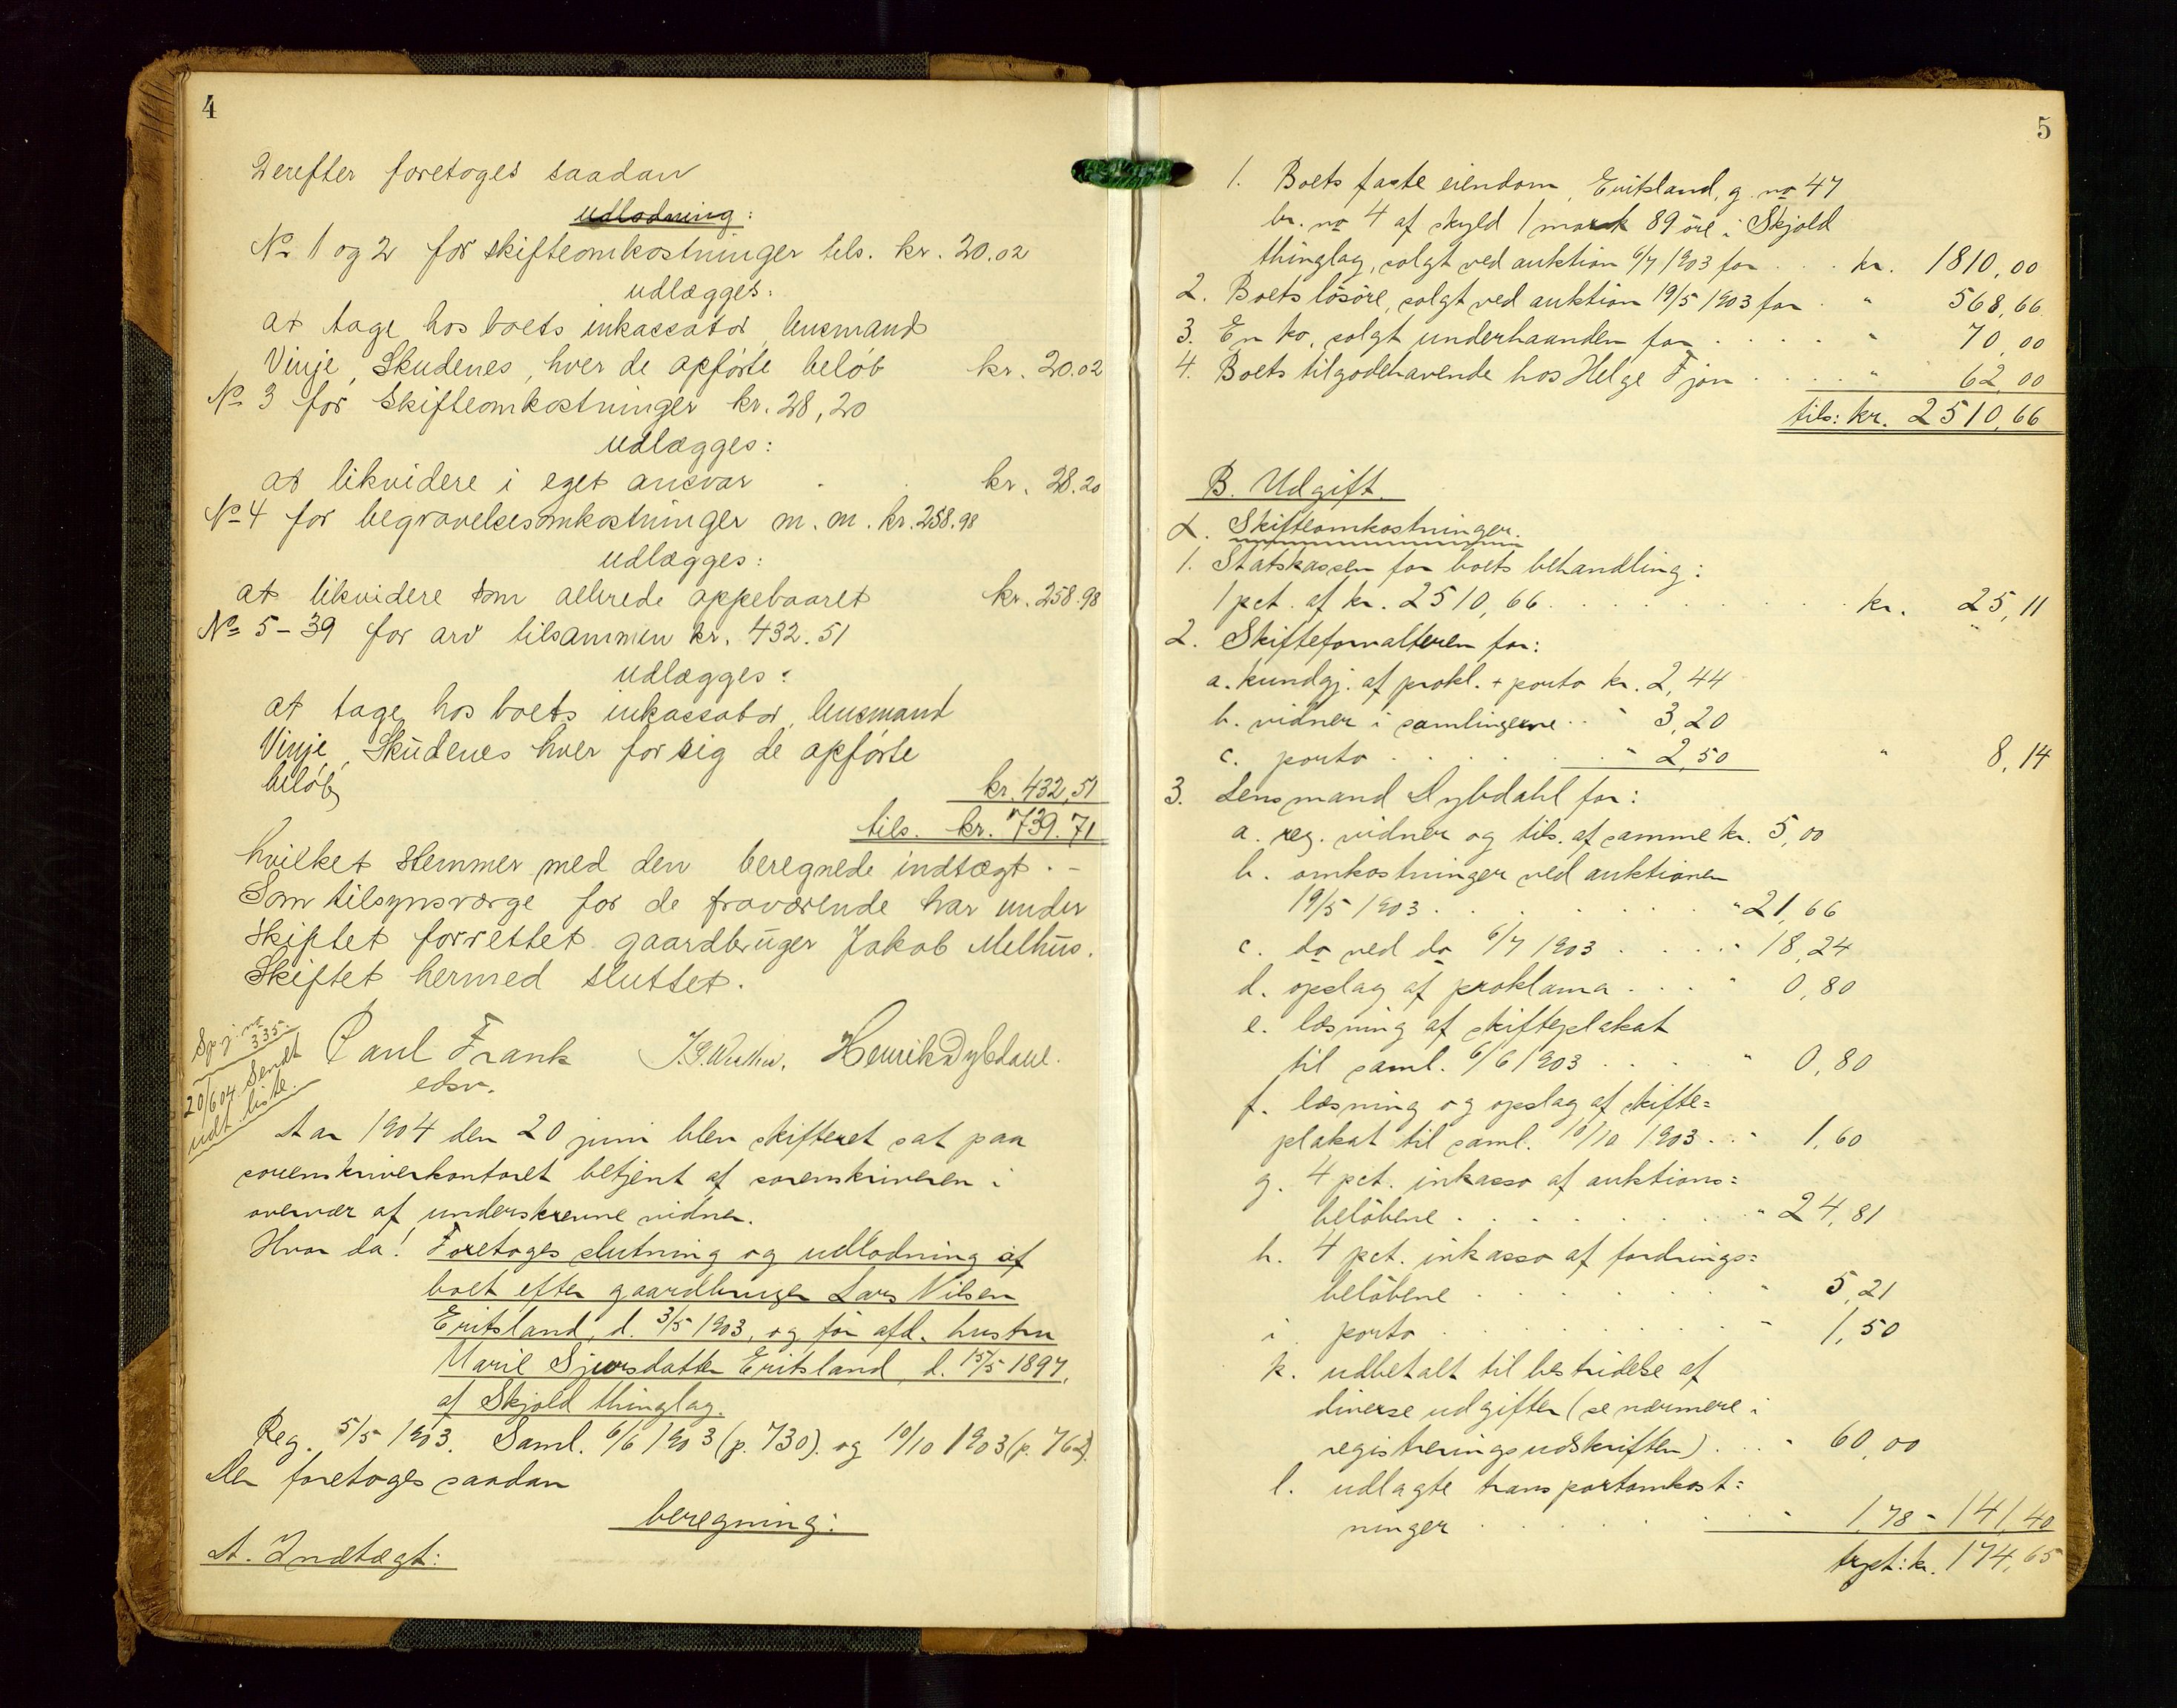 4
Derefter foretoges saadan
udlodning:
No 1 og 2 for skifteomkostninger tils. kr. 20.02
udlægges:
at tage hos boets inkassator, lensmand
Vinje, Skudenes, hver de opførte beløb kr. 20.02
No 3 for skifteomkostninger kr. 28,20
udlægges:
at likvidere i eget ansvar . . kr. 28.20
No 4 for begravelsesomkostninger m. m. kr. 258.98
udlægges:
at likvidere som allerede oppebaaret kr. 258.98
No 5-39 for arv tilsammen kr. 432.51
udlægges:
at tage hos boets inkassator, lensmand
Vinje, Skudenes hver for sig de opførte
beløb kr. 432,51
tils. kr. 739.71
hvilket stemmer med den beregnede indtægt. -
Som tilsynsværge for de fraværende har under
skiftet forrettet gaardbruger Jakob Melhus.
Skiftet hermed sluttet.
Sp.j. no 335.
20/6 04 Sendt
udt. liste.
Paul Frank Henrik Dybdahl.
edsv.
Aar 1904 den 20 juni blev skifteret sat paa
sorenskriverkontoret betjent af sorenskriveren i
overvær af underskrevne vidner.
Hvor da! Foretoges slutning og udlodning af
boet efter gaardbruger Lars Nilsen
Eritsland, d. 3/5 1903, og før afd. hustru
Maril Sjursdatter Eritsland, d. 15/5 1897,
af Skjold thinglag.
Reg. 5/5 1903. Saml. 6/6 1903 (p. 730). og 10/10 1903 (p. 762).
Der foretoges saadan
beregning:
A. Indtægt:
5
1. Boets faste eiendom, Eritsland, g. no 47
br. no 4 af skyld 1 mark 89 øre i Skjold
thinglag, solgt ved auktion 6/7 1903 for . . . kr. 1810,00
2. Boets løsøre, solgt ved auktion 19/5 1903 for . " 568,66
3. En ko, solgt underhaanden for . . . . . " 70,00
4. Boets tilgodehavende hos Helge Fjon . . . . " 62,00
tils: kr. 2510,66
B. Udgift.
α. Skifteomkostninger.
1. Statskassen for boets behandling:
1 pct. af kr. 2510,66 . . . . . . . . . kr. 25,11
2. Skifteforvalteren for:
a. kundgj. af prokl. + porto kr. 2,44
b. vidner i samlingerne . . " 3,20
c. porto . . . . . . . " 2,50 " 8,14
3. Lensmand Dybdahl for:
a. reg. vidner og tils. af samme kr. 5,00
b. omkostninger ved auktionen
19/5 1903 . . . . . . . . " 21,66
c. do ved do 6/7 1903 . . . . " 18,24
d. opslag af proklama . . . " 0,80
e. læsning af skifteplakat
til saml. 6/6 1903 . . . . " 0,80
f. læsning og opslag af skifte=
plakat til saml. 10/10 1903 . . " 1,60
g. 4 pct. inkasso af auktions=
beløbene . . . . . . . . " 24,81
h. 4 pct. inkasso af fordrings=
beløbene . . . . . . . . " 5,21
i. porto . . . . . . . . . " 1,50
k. udbetalt til bestridelse af
diverse udgifter (se nærmere i
registreringsudskriften) . . . " 60,00
l. udlagte transportomkost=
ninger . . . . . . . . " 1,78 " 141,40
trspt: kr. 174,65